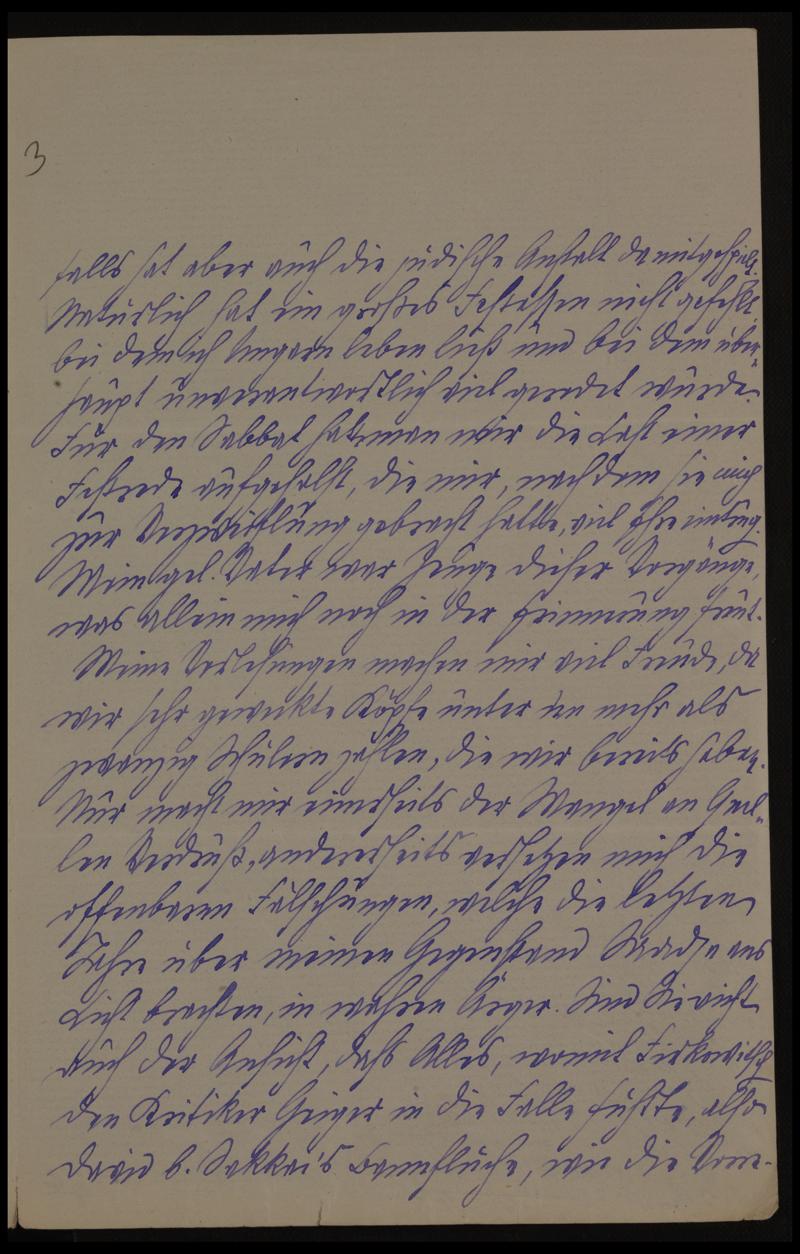 3
falls hat aber auch die jüdische Anstalt da mitgespielt.
Natürlich hat ein großes Festessen nicht gefehlt,
bei dem ich Ungarn leben ließ und bei dem über-
haupt unverantwortlich viel geredet wurde.
Für den Sabbat hat man mir die Last einer
Festrede aufgehalst, die mir, nachdem sie mich
zur Verzweiflung gebracht hatte, viel Ehre eintrug.
Mein gel. Vater war Zeuge dieser Vorgänge,
was allein mich noch in der Erinnerung freut.
Meine Vorlesungen machen mir viel Freude, da
wir sehr geweckte Köpfe unter den mehr als
zwanzig Schülern zählen, die wir bereits haben.
Nur macht mir einestheils der Mangel an Quel-
len Verdruß, anderseits versetzen mich die
offenbaren Fälschungen, welche die letzten
Jahre über meinen Gegenstand Saadja ans
Licht brachten, in wahren Ärger. Sind Sie nicht
auch der Ansicht, daß Alles, womit Firkowitsch
den Kritiker Geiger in die Falle führte, also
David b. Sakkai's Bannflüche, wie die Vorre-